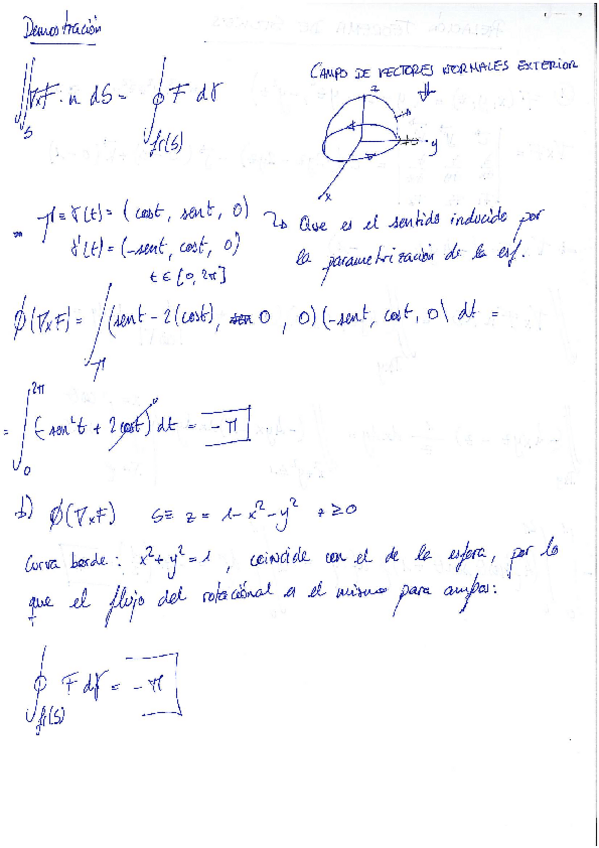 Demostración
CAMPO DE VECTORES NORMALES EXTERIOR
∬_S ∇xF · n dS = ∮_fr(S) F dγ
z
y
x
γ ≡ γ(t) = (cost, sent, 0) ↝ Que es el sentido inducido por
γ'(t) = (-sent, cost, 0) la parametrización de la esf.
t ∈ [0, 2π]
ϕ(∇xF) = ∫_γ (sent - 2(cost), 0, 0)(-sent, cost, 0) dt =
= ∫_0^2π (-sen²t + 2cost) dt = -π
b) ϕ(∇xF) S≡ z = 1 - x² - y² z ≥ 0
Curva borde: x² + y² = 1, coincide con el de la esfera, por lo
que el flujo del rotacional es el mismo para ambos:
∮_fr(S) F dγ = -π